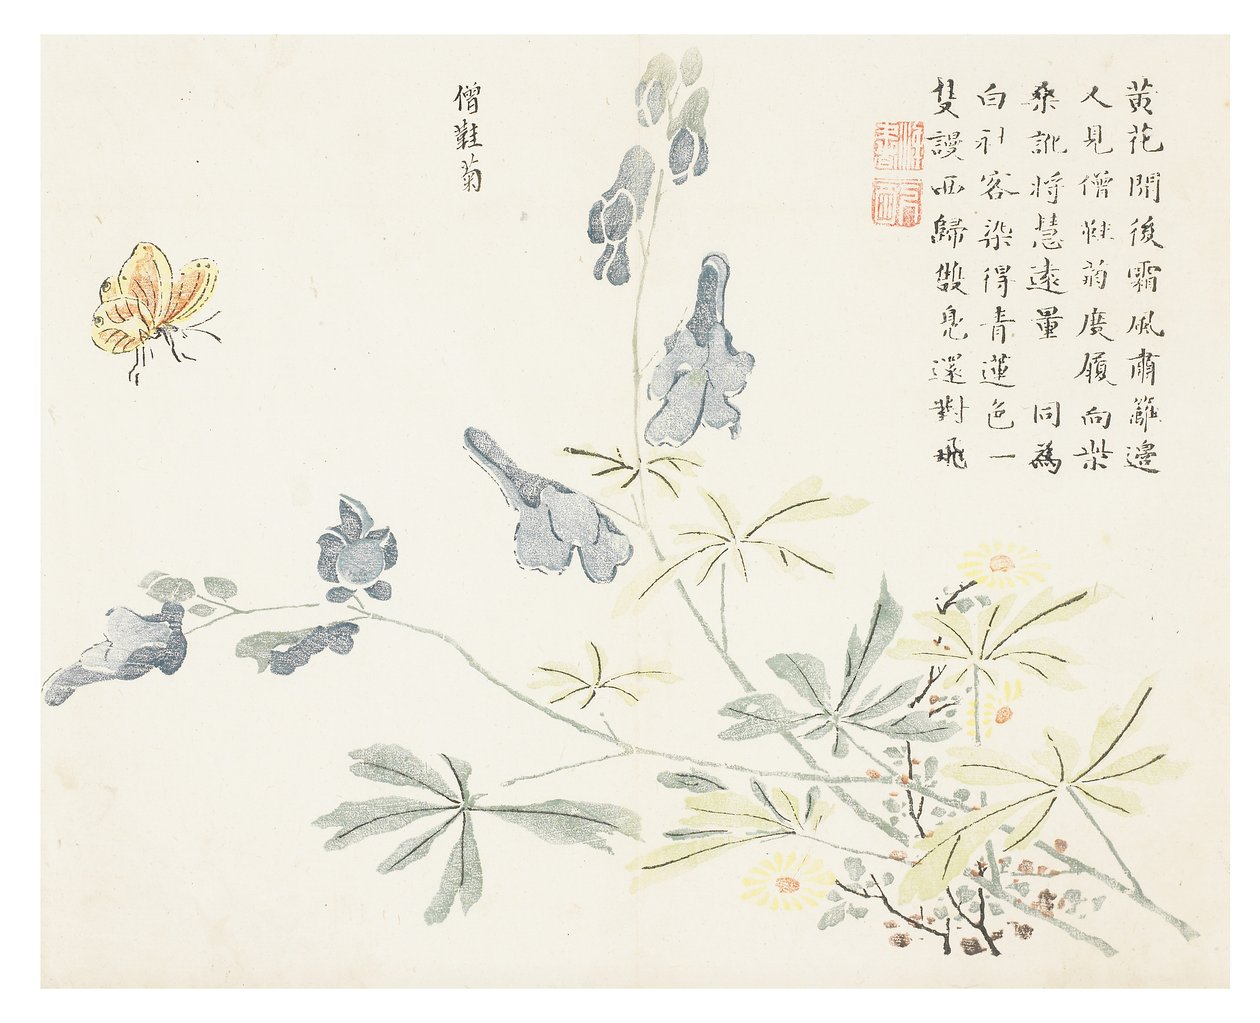 黃花開後霜風肅籬邊
人見僧鞋菊履向柴
桑訛將慧遠量　同為
白社客染得青蓮色一
隻謾西歸雙鳧還對飛
僧鞋菊